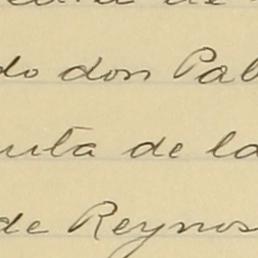 do don Pab
uita de la
de Reynos